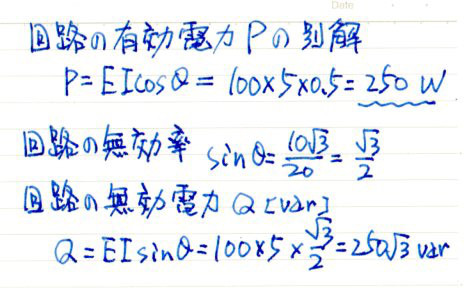 Date
回路の有効電力Pの別解
P=EIcosθ= 100×5×0.5= 250 W
回路の無効率 sinθ= 10√3/20 = √3/2
回路の無効電力 Q [var]
Q=EIsinθ=100×5×√3/2=250√3 var